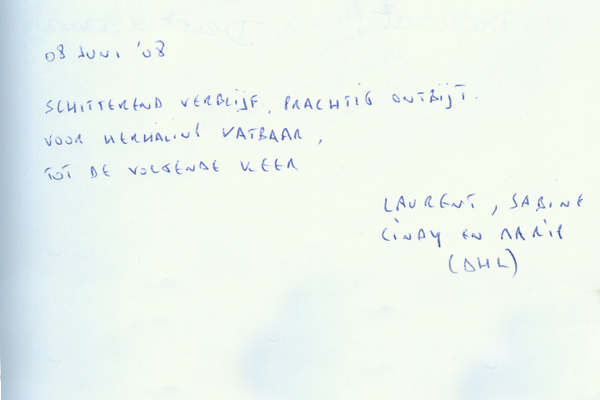 08 JUNI '08
SCHITTEREND VERBLIJF, PRACHTIG ONTBIJT.
VOOR HERHALING VATBAAR,
TOT DE VOLGENDE KEER
LAURENT, SABINE
CINDY EN
(DHL)